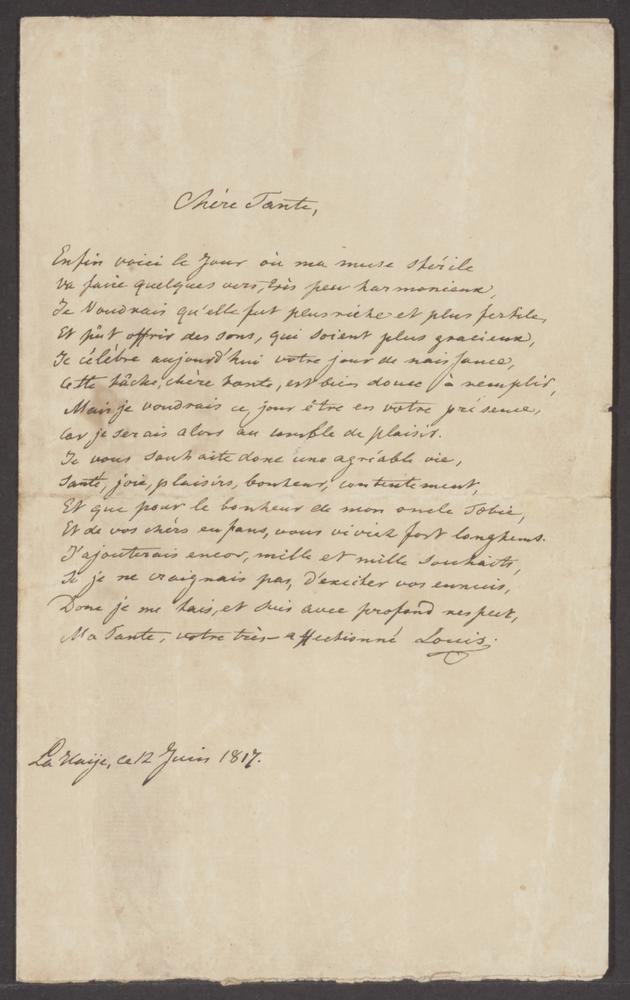 Chère Tante,
Enfin voici le Jour où ma muse stérile
Va faire quelques vers, très peu harmonieux,
Je Voudrais qu'elle fut plus riche et plus fertile,
Et pût offrir des sons, qui soient plus gracieux,
Je célébre aujourd'hui votre jour de naissance,
Cette tâche, chère tante, est bien douce à remplir,
Mais je voudrais ce jour être en votre présence,
Car je serais alors au comble de plaisir.
Je vous souhaite donc une agréable vie,
Santé, joie, plaisirs, bonheur, contentement,
Et que pour le bonheur de mon oncle Tobie,
Et de vos chérs enfans, vous viviez fort longtems.
J'ajouterais encor, mille et mille souhaits,
Si je ne craignais pas, d'exciter vos ennuis,
Donc je me tais, et suis avec profond respect,
Ma Tante, votre très-affectionné Louis.
La Haije, ce 12 Juin 1817.